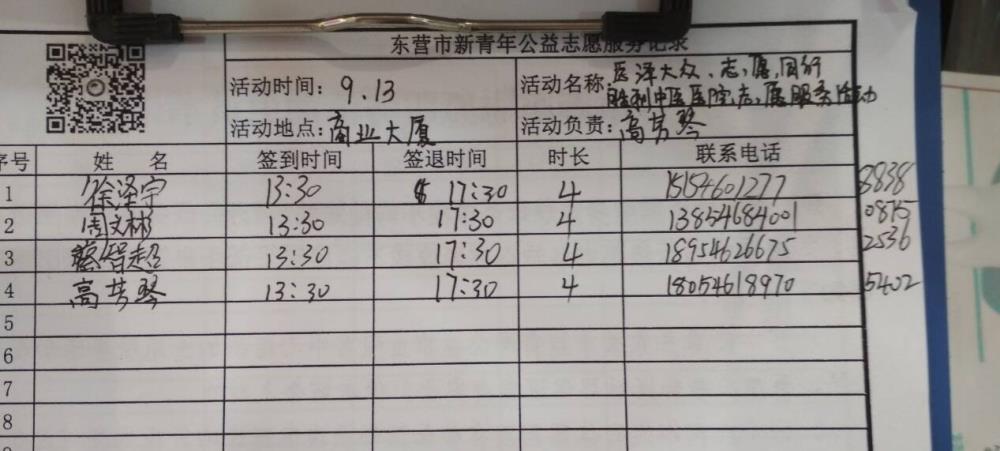 东营市新青年公益志愿服务记录
活动时间: 9.13 活动名称: 医泽大众、志愿同行
胜利中医医院志愿服务活动
活动地点: 商业大厦 活动负责: 高梦琴
序号 姓 名 签到时间 签退时间 时长 联系电话
1 徐泽宇 13:30 17:30 4 15154601277 8838
2 周文彬 13:30 17:30 4 13854684001 0875
3 蔡智超 13:30 17:30 4 18954626675 2536
4 高梦琴 13:30 17:30 4 18054618970 5402
5
6
7
8